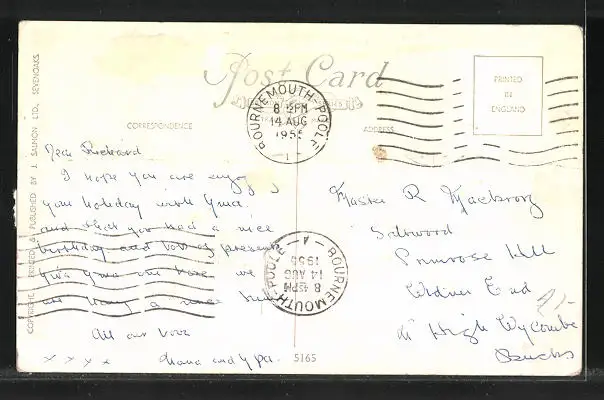 Post Card
CORRESPONDENCE
ADDRESS
PRINTED
IN
ENGLAND
BOURNEMOUTH-POOLE
8 15PM
14 AUG
1955
COPYRIGHT. PRINTED & PUBLISHED BY J. SALMON LTD., SEVENOAKS.
Dear Richard
I hope you are enjoy
your holiday with Gma.
and that you had a nice
birthday and lots of presents
give Gma our love we
are having a nice time
All our love
x x x x Nana and Gpa.
5165
Master R
Saltwood
Primrose Hill
Widmer End
Nr High Wycombe
Bucks
BOURNEMOUTH-POOLE
8 15PM
14 AUG
1955
A